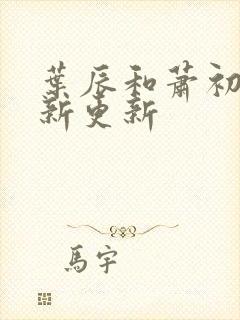 葉辰和蕭初
新更新
馬宇